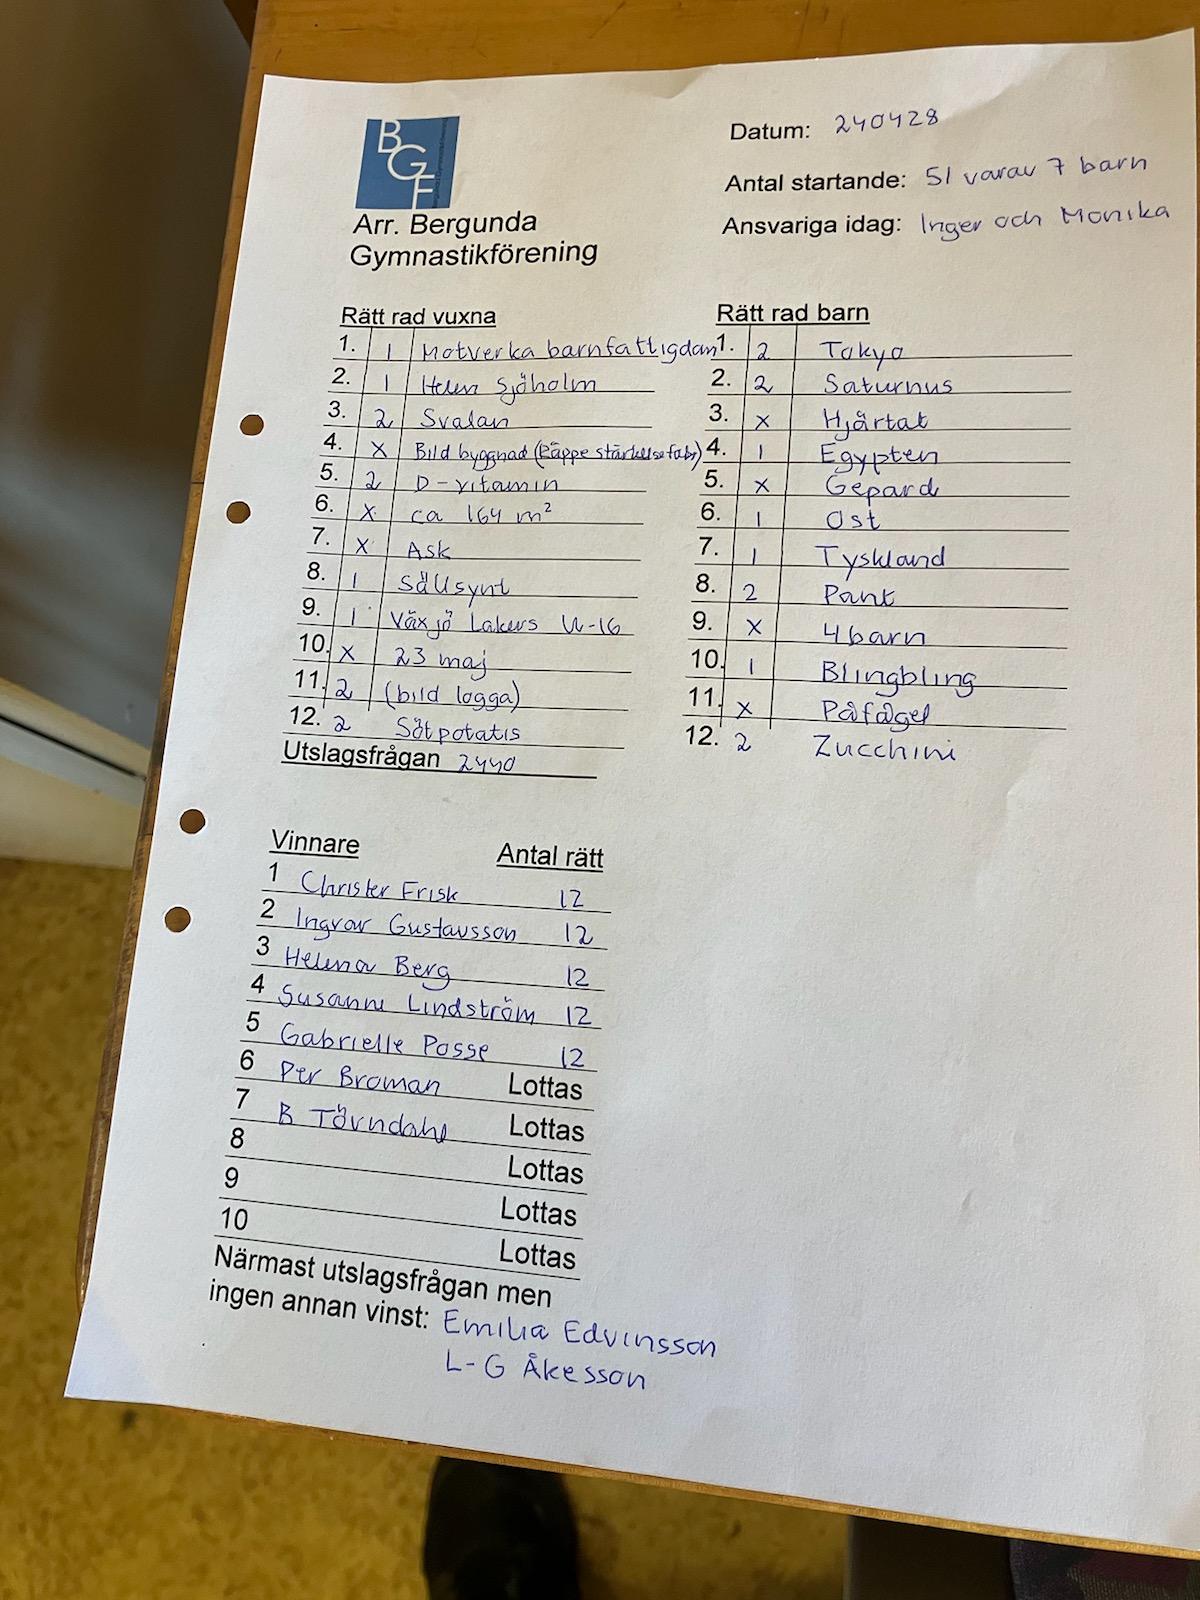 BGF
Datum: 240428
Antal startande: 51 varav 7 barn
Ansvariga idag: Inger och Monika
Arr. Bergunda
Gymnastikförening
Rätt rad vuxna
1. 1 Motverka barnfattigdom
2. 1 Helen Sjöholm
3. 2 Svalan
4. x Bild byggnad (Räppe stärkelsefabr)
5. 2 D-vitamin
6. x ca 164 m²
7. x Ask
8. 1 Sällsynt
9. 1 Växjö Lakers U-16
10. x 23 maj
11. 2 (bild logga)
12. 2 Sötpotatis
Utslagsfrågan 2440
Rätt rad barn
1. 2 Tokyo
2. 2 Saturnus
3. x Hjärtat
4. 1 Egypten
5. x Gepard
6. 1 Ost
7. 1 Tyskland
8. 2 Pant
9. x 4 barn
10. 1 Blingbling
11. x Påfågel
12. 2 Zucchini
Vinnare Antal rätt
1 Christer Frisk 12
2 Ingvar Gustavsson 12
3 Helena Berg 12
4 Susanne Lindström 12
5 Gabrielle Posse 12
6 Per Broman Lottas
7 B Törndahl Lottas
8 Lottas
9 Lottas
10 Lottas
Närmast utslagsfrågan men
ingen annan vinst: Emilia Edvinsson
L-G Åkesson